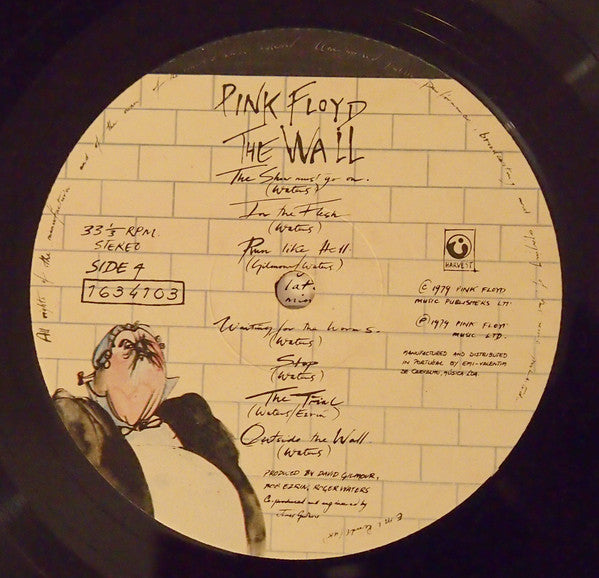 PINK FLOYD
THE WALL
The Show must go on.
(Waters)
In the Flesh
(Waters)
Run like Hell.
(Gilmour/Waters)
33 1/3 RPM.
STEREO
SIDE 4
1634103
HARVEST
Waiting for the Worms.
(Waters)
Stop
(Waters)
The Trial
(Waters/Ezrin)
Outside the Wall.
(Waters)
PRODUCED BY DAVID GILMOUR,
BOB EZRIN, ROGER WATERS
Co-produced and engineered by
James Guthrie
© 1979 PINK FLOYD
MUSIC PUBLISHERS LTD.
℗ 1979 PINK FLOYD
MUSIC LTD.
MANUFACTURED AND DISTRIBUTED
IN PORTUGAL BY EMI-VALENTIM
DE CARVALHO, MÚSICA LDA.
All rights of the manufacturer and of the owner of the
performance, broadcasting and copying of